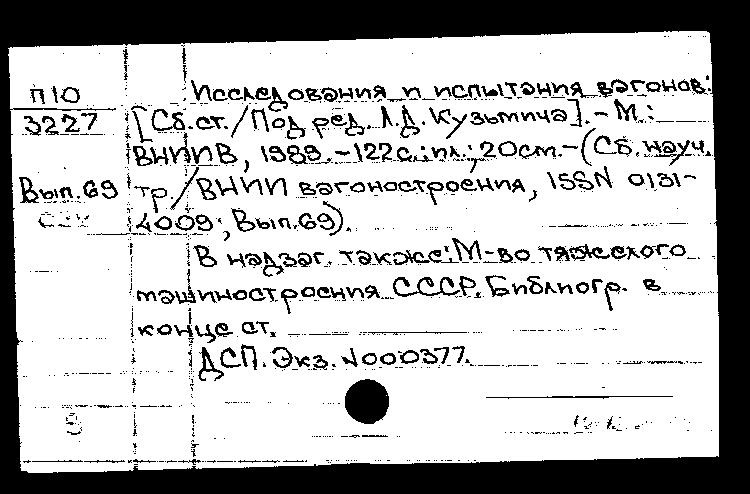 П10
3227
Вып.69
Исследования и испытания вагонов:
[Сб.ст./Под ред. Л.Д. Кузьмича]. - М.:
ВНИИВ, 1989. - 122с.: ил.; 20см. - (Сб. науч.
тр./ВНИИ вагоностроения, ISSN 0131-
4009; Вып.69).
В надзаг. также: М-во тяжелого
машиностроения СССР. Библиогр. в
конце ст.
ДСП. Экз. N000377.